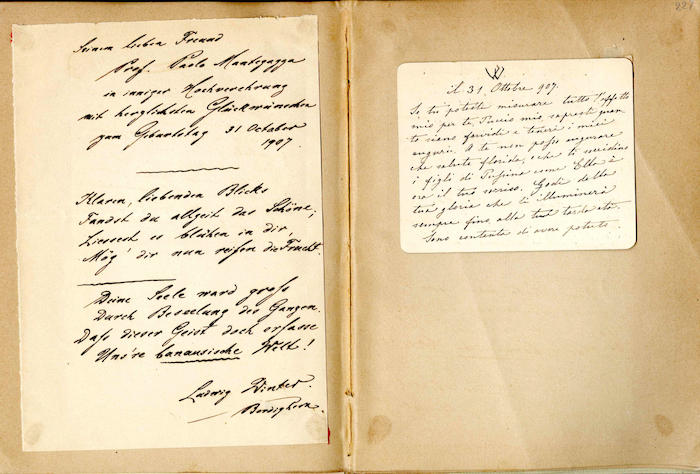 Seinem lieben Freund
Prof. Paolo Mantegazza
in inniger Hochverehrung
mit herzlichsten Glückwünschen
zum Geburtstag 31 October
1907.
Klaren, liebenden Blicks
Fandst du allzeit das Schöne,
Liessest es blühen in dir,
Mög' dir nun reifen die Frucht.
Deine Seele ward gross
Durch Beseelung des Ganzen.
Dass dieser Geist doch erfasse
Uns're banausische Welt!
Ludwig Winter.
Bordighera.
il 31. Ottobre 907.
Se tu potessi misurare tutto l'affetto
mio per te, Puccio mio, sapresti quan
to siano fervidi e teneri i miei
augurii. A te non posso augurare
che salute florida, e che ti
i figli di come Ella è
ora il tuo sorriso. Godi della
tua gloria che ti illuminerà
sempre fino alla tua tarda età.
Sono contenta di avere potuto